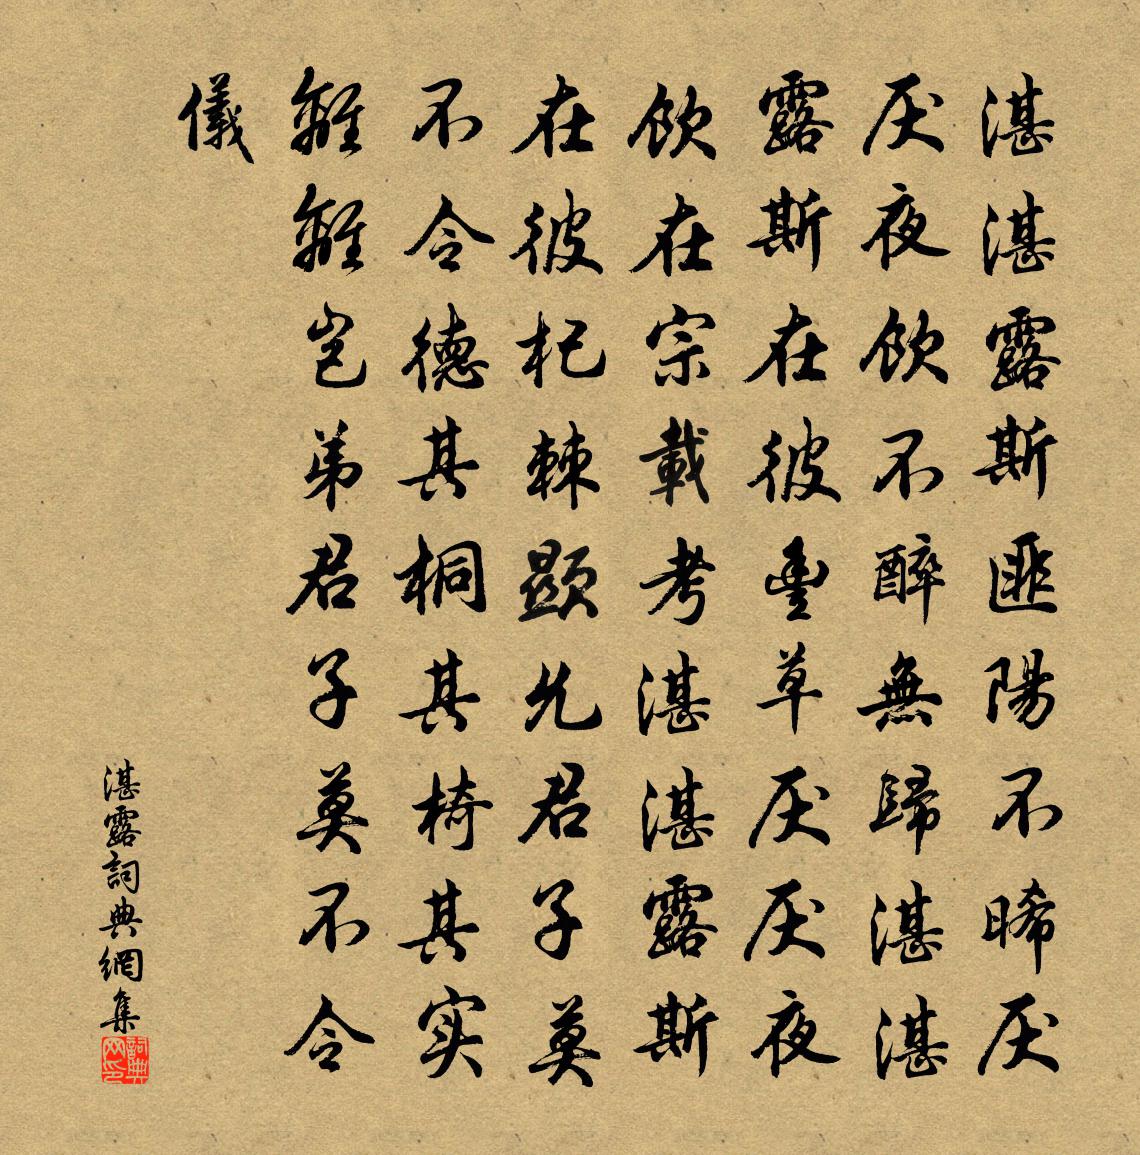 湛湛露斯匪陽不晞厌
厌夜飲不醉無歸湛湛
露斯在彼豊草厌厌夜
飲在宗載考湛湛露斯
在彼杞棘顯允君子莫
不令德其桐其椅其实
離離岂弟君子莫不令
儀
湛露詞典網集
詞典网印